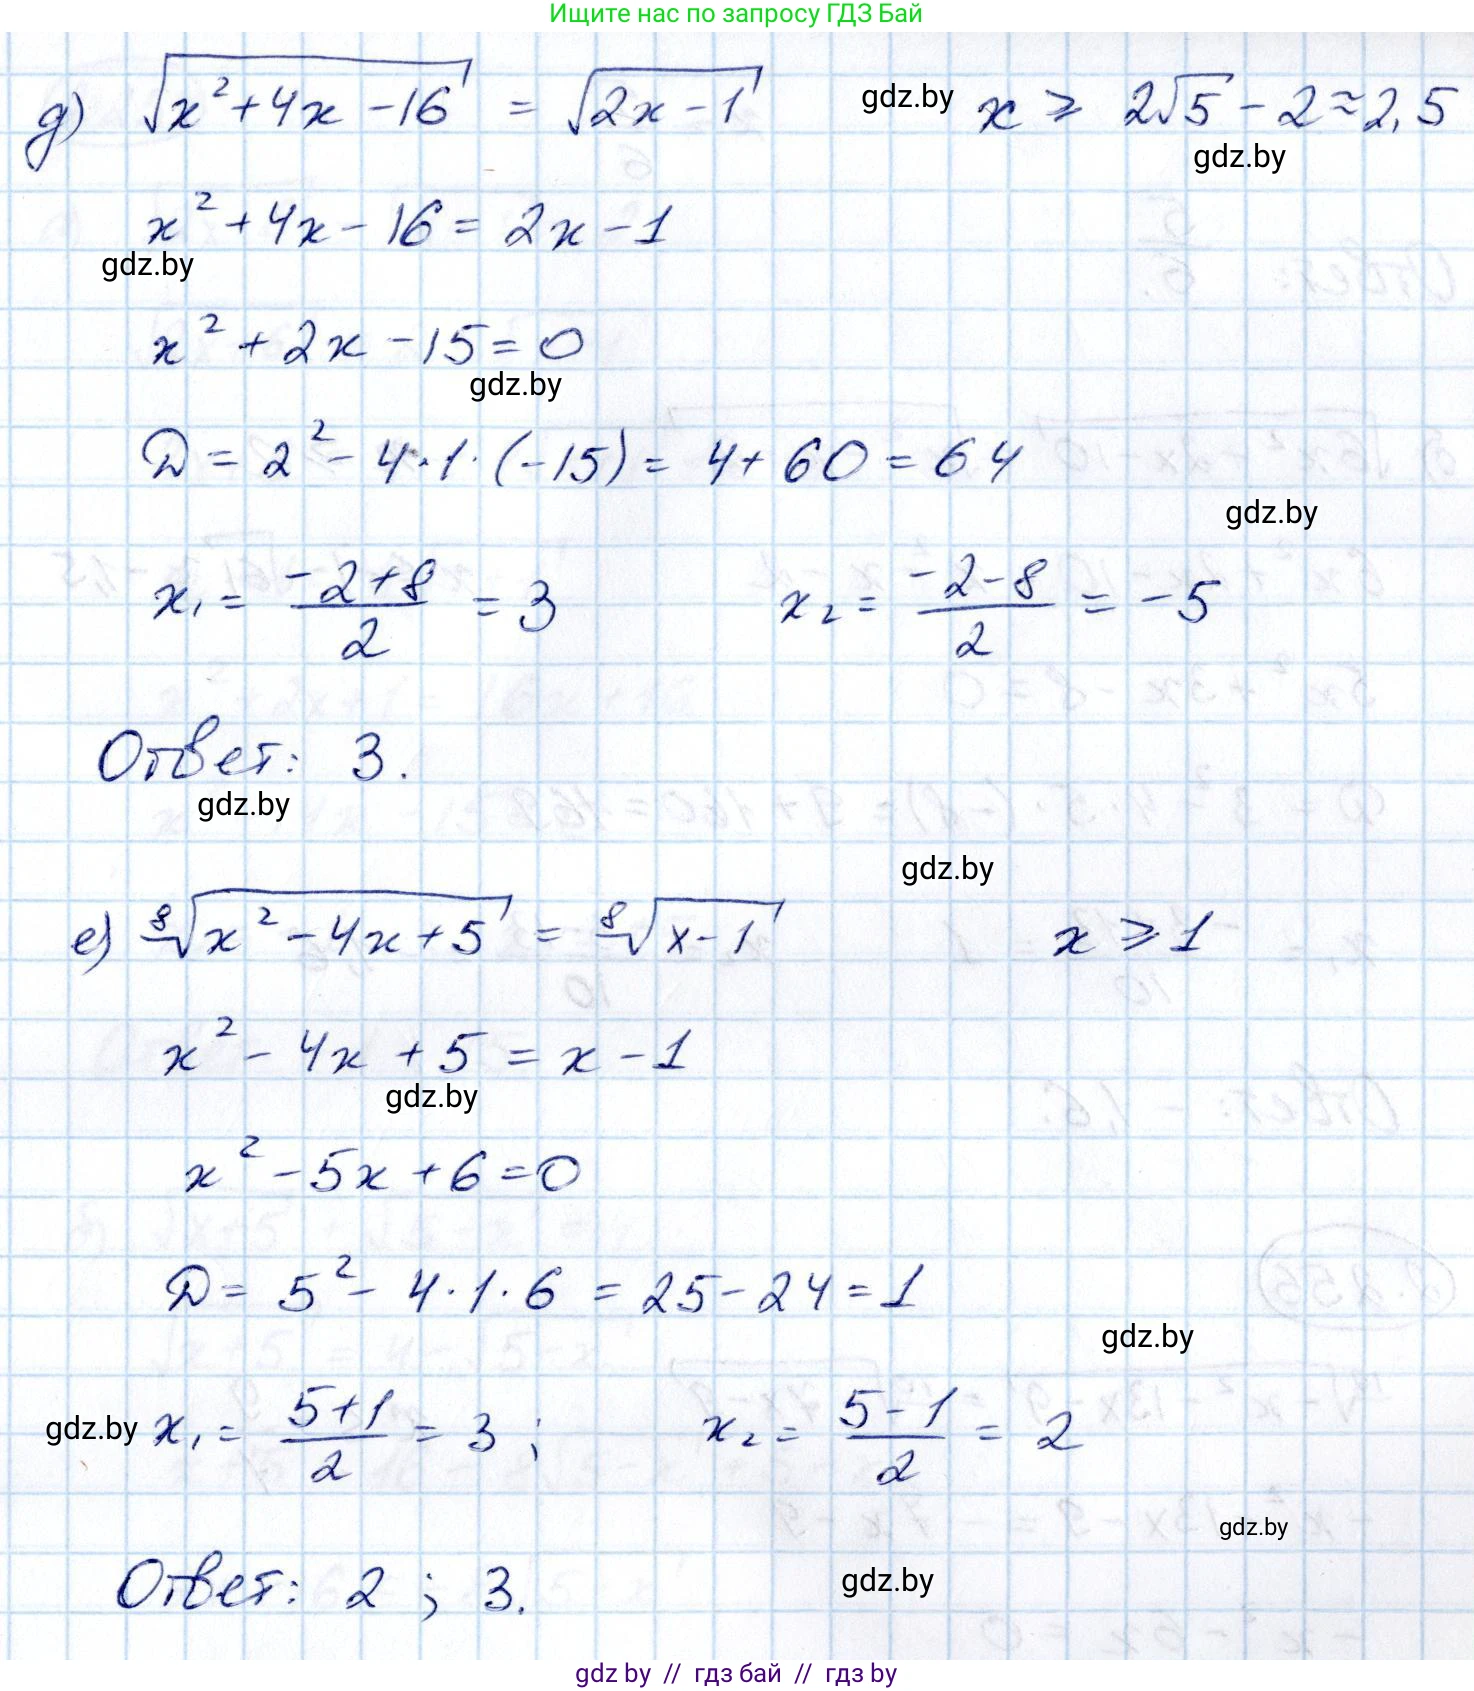 Ищите нас по запросу ГДЗ Бай
д) √(x² + 4x - 16) = √(2x - 1) gdz.by x ≥ 2√5 - 2 ≈ 2,5
gdz.by
x² + 4x - 16 = 2x - 1
gdz.by
x² + 2x - 15 = 0
gdz.by
D = 2² - 4 · 1 · (-15) = 4 + 60 = 64
gdz.by
x₁ = (-2+8)/2 = 3 x₂ = (-2-8)/2 = -5
Ответ: 3.
gdz.by
gdz.by
е) ⁸√(x² - 4x + 5) = ⁸√(x - 1) x ≥ 1
x² - 4x + 5 = x - 1
gdz.by
x² - 5x + 6 = 0
D = 5² - 4 · 1 · 6 = 25 - 24 = 1
gdz.by
gdz.by x₁ = (5+1)/2 = 3 ; x₂ = (5-1)/2 = 2
gdz.by
Ответ: 2 ; 3.
gdz.by
gdz by // гдз бай // гдз by